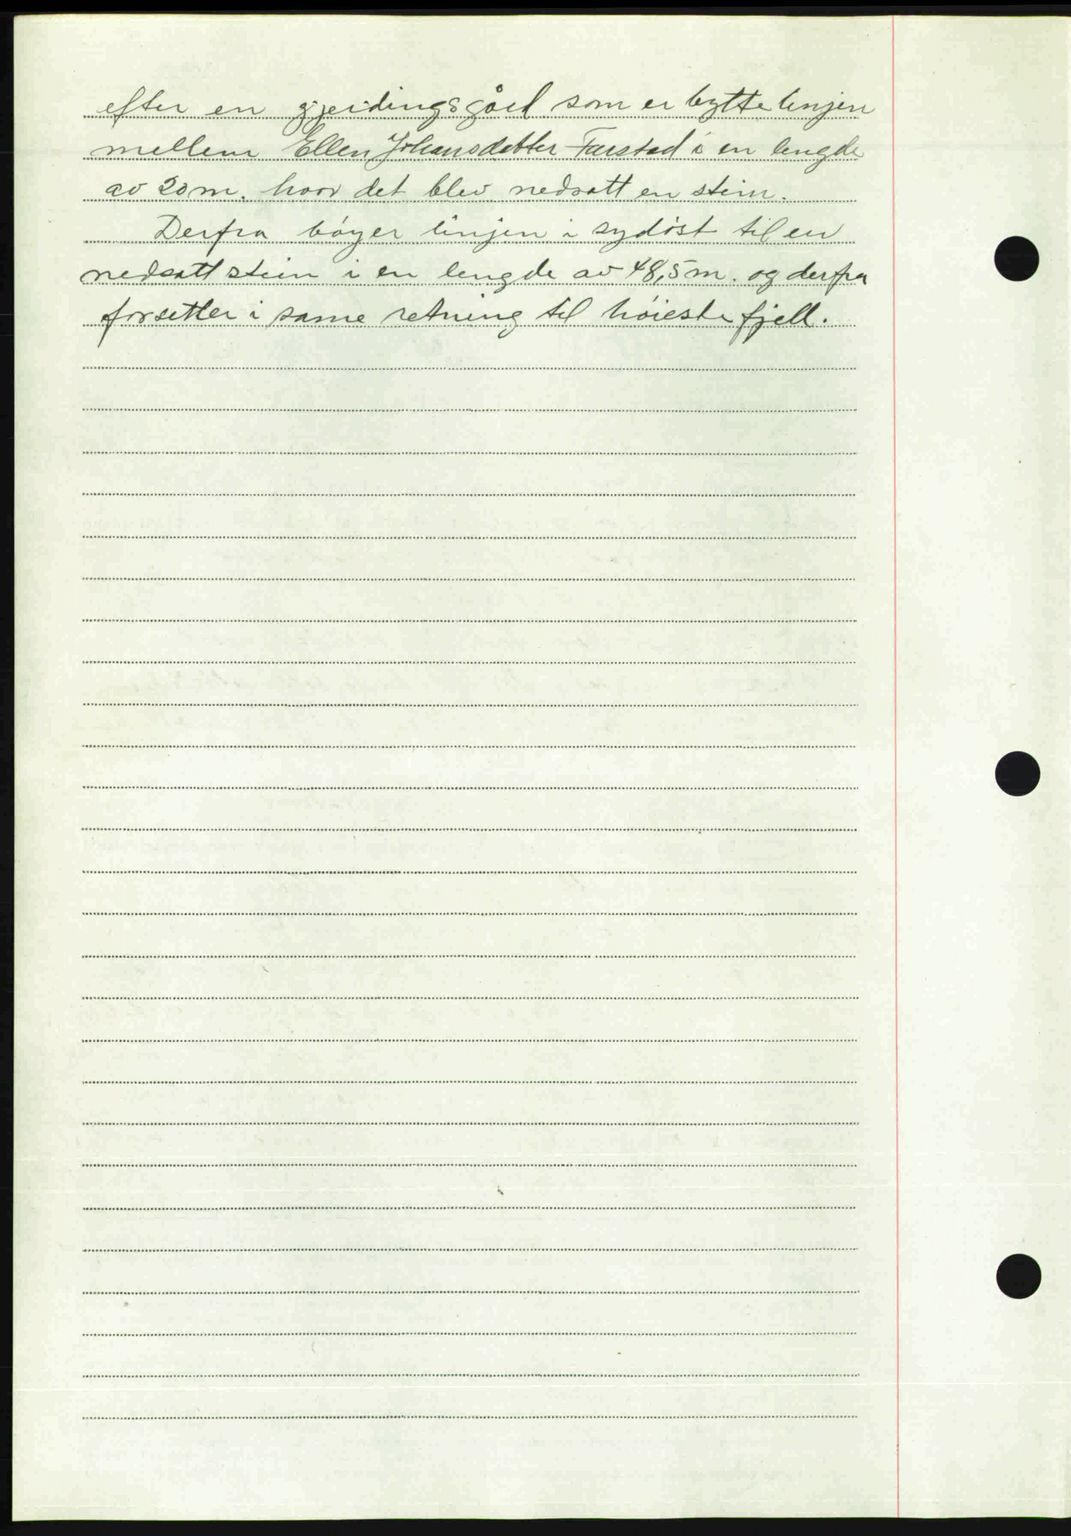 efter en gjerdingsgård som er byttelinjen
mellem Ellen Johansdatter Farstad i en lengde
av 20 m. hvor det blev nedsatt en stein.
Derfra bøyer linjen i sydøst til en
nedsatt stein i en lengde av 48,5 m. og derfra
forsetter i same retning til høieste fjell.